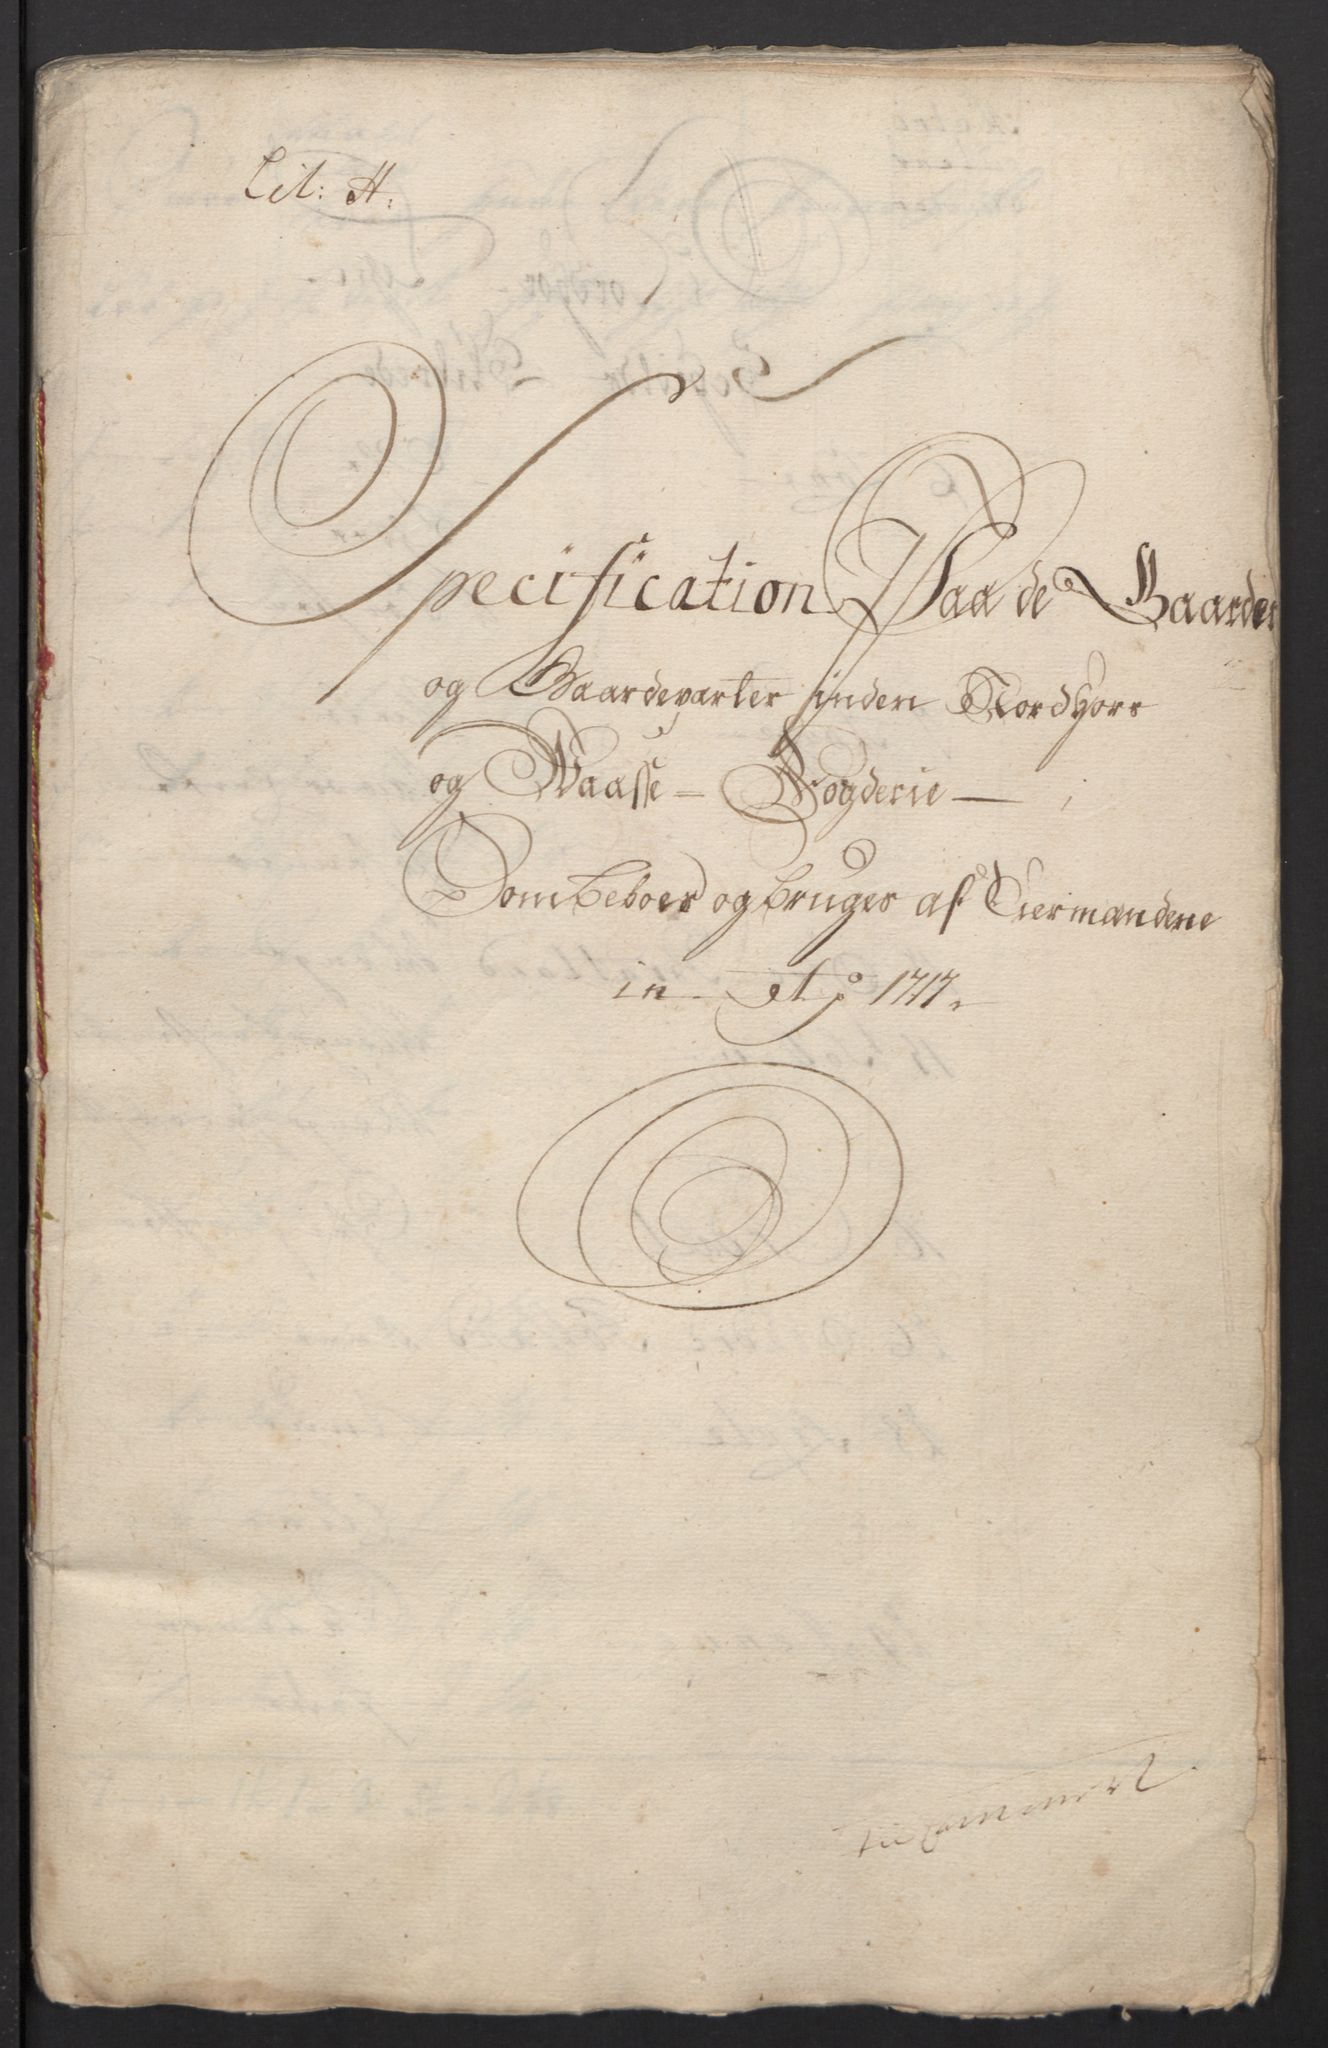 Lit: H.
Specification Paa de Gaarder
og Gaardeparter inden Nordhors
og Waasse - Fogderie -
Som beboes og bruges af Eiermændene
in Ao 1717.